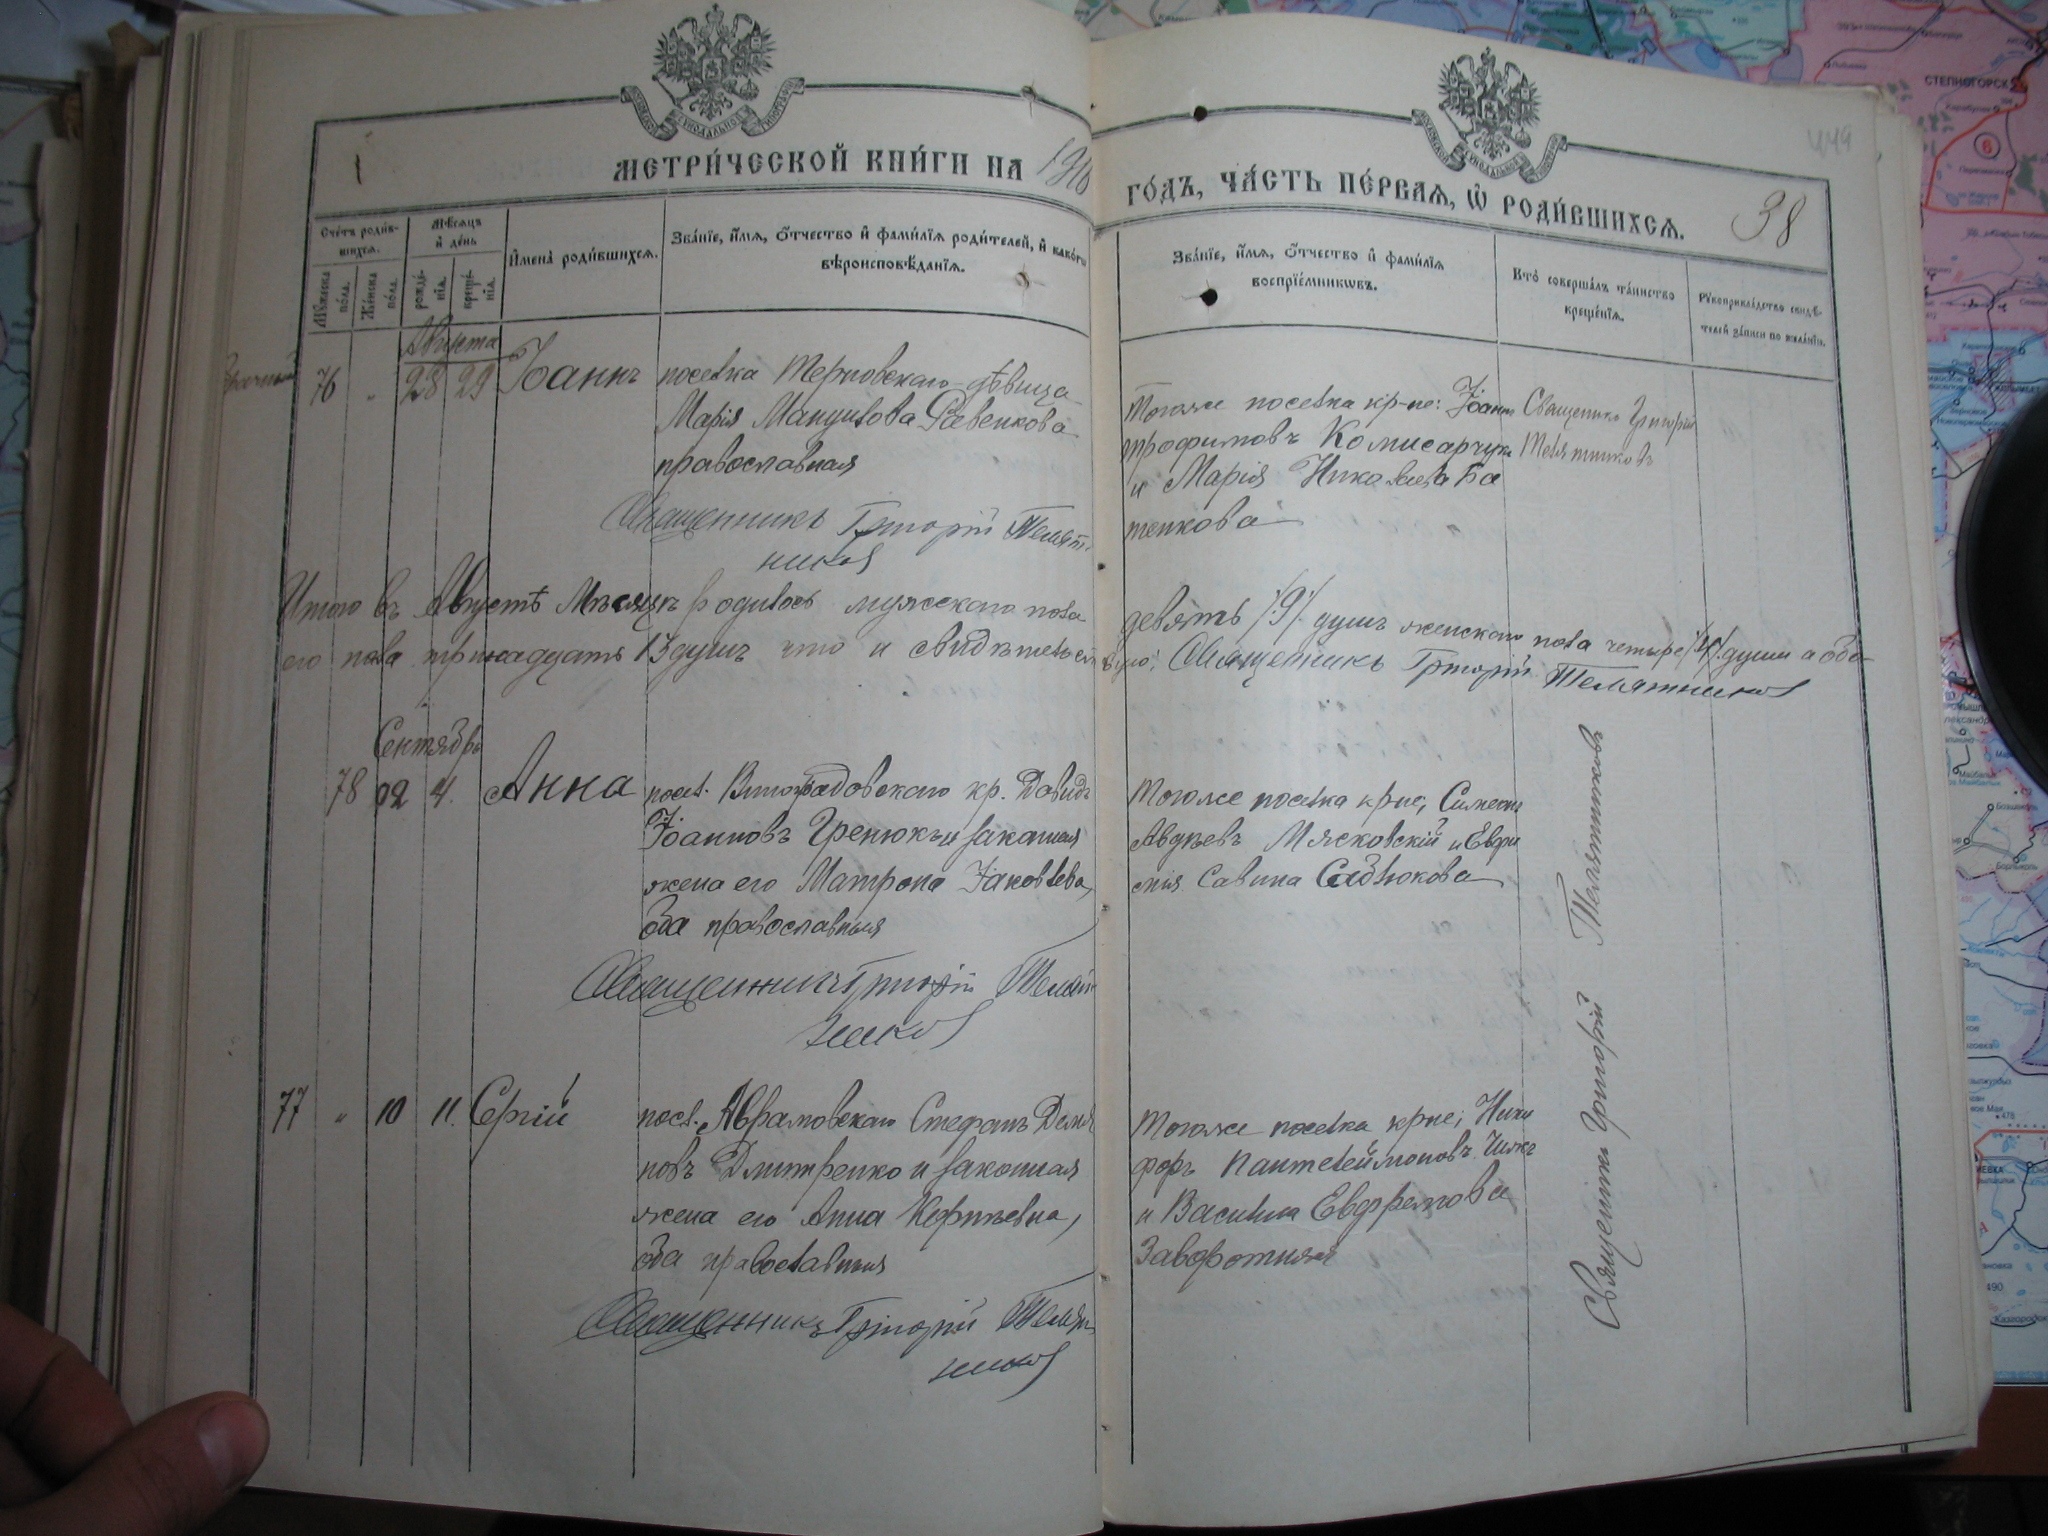 МЕТРИ́ЧЕСКОЙ КНИ́ГИ НА 1916 ГО́ДЪ, ЧА́СТЬ ПЕ́РВАЯ, Ѡ РОДИ́ВШИХСЯ.
38
449
Сче́тъ роди́в-
шихся.
Му́жеска
по́ла.
Же́нска
по́ла.
Мѣ́сяцъ
и де́нь
рожде́-
нія.
креще́-
нія.
Имена̀ роди́вшихся.
Зва́нїе, и́мя, о́тчество и҆ фами́лїя роди́телей, и҆ како́гѡ
вѣроисповѣ́данїя.
Зва́нїе, и́мя, о́тчество и҆ фами́лїя
воспрїе́мникѡвъ.
Кто̀ соверша́лъ та́инство
креще́нїя.
Рꙋкоприкла́дство свидѣ́-
телей за́писи по жела́нїю.
Августа
76 " 28 29 Іоаннъ
поселка Терновскаго дѣвица
Марія Мануилова Равенкова
православная
Священникъ Григорій Телят-
никовъ
Тогоже поселка кр-не: Іоаннъ
Трофимовъ Комисарчукъ
и Марія Николаева Ба
тенкова
Священникъ Григорій
Телятниковъ
Итого въ Августѣ Мѣсяцѣ родилось мужескаго пола девять /9/ душъ женскаго пола четыре /4/ души а обо-
его пола тринадцать 13 душъ что и свидѣтельствую: Священникъ Григорій Телятниковъ
Сентябрь
78 02 4. Анна
посел. Виноградовскаго кр. Давидъ
Іоанновъ Гренюкъ и законная
жена его Матрона Іаковлева,
оба православныя
Священникъ Григорій Телят-
никовъ
Тогоже поселка крне; Симеонъ
Авдѣевъ Мясковскій и Евфи
мія Савина Сѣдлюкова
77 " 10 11. Сергій
посел. Аврамовскаго Стефанъ Демья
новъ Дмитренко и законная
жена его Анна Корнѣевна,
оба православныя
Священникъ Григорій Телят-
никовъ
Тогоже поселка крне; Ники
форъ Пантелеймоновъ Чижъ
и Василиса Евфремова
Заворотняя
Священникъ Григорій Телятниковъ